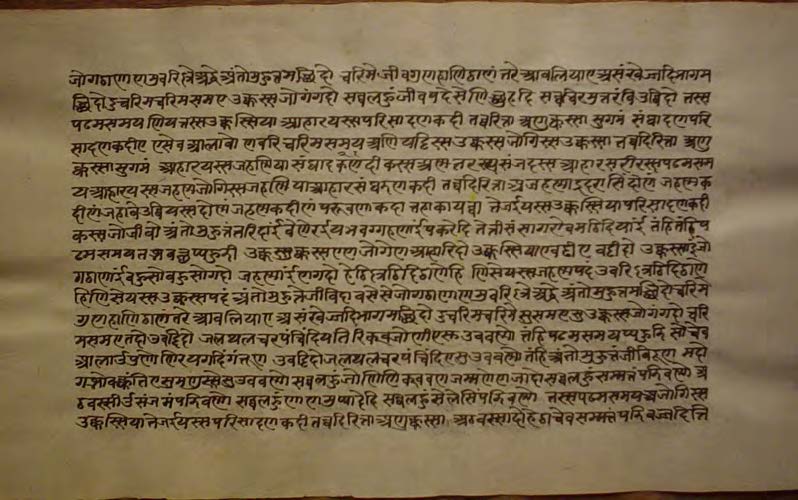 जोगठाणाणमुवरिल्ले अद्धे अंतोमुहुत्तमच्छिदो चरिमे जीवगुणहाणिठाणंतरे आवलियाए असंखेज्जदिभागम
च्छिदो दुचरिमचरिमसमए उक्कस्सजोगंगदो सव्वलहुं जीवपदेसे णिच्छुहदि सव्वचिरमुत्तरंविउव्विदो तस्स
पढमसमयणियत्तस्स उक्कस्सिया आहारयस्स परिसादणकदी तव्वदिरित्ता अणुक्कस्सा सुगमं संघादणपरि
सादणकदीए एसेव आलावो णवरि चरिमसमयअणियट्टिस्स उक्कस्सजोगिस्स उक्कस्सा तव्वदिरित्ता अणु
क्कस्सा सुगमं आहारयस्स जहण्णिया संघादणकदी कस्स अण्णदरस्स संजदस्स आहारसरीरस्स पढमसम
यआहारयस्स जहण्णजोगिस्स जहण्णिया आहारसंघादणकदी तव्वदिरित्ता अजहण्णा इदरासिं दोण्णं जहण्णक
दीणं जहा वेउव्वियस्स दोण्णं जहण्णकदीणं परूवणा कदा तहा कायव्वा तेजइयस्स उक्कस्सिया परिसादणकदी
कस्स जो जीवो अंतोमुहुत्तंतरिदाइं बेणेरइयभवग्गहणाइं पकरेदि तेत्तीसं सागरोवमट्ठिदियाइं तम्हि तम्हि प
ढमसमयतब्भवत्थप्पहुडि उक्कस्सएण जोगेण आहारिदो उक्कस्सियाए वड्ढीए वड्ढिदो उक्कस्साइं जो
गठाणाइं बहुसो बहुसो गदो जहण्णाइं ण गदो हेट्ठिल्लट्ठिदिठाणेहि णिसेयस्स जहण्णपदं उवरिल्लट्ठिदिठाणे
हि णिसेयस्स उक्कस्सपदं अंतोमुहुत्तेजीविदावसेसे जोगठाणाणमुवरिल्ले अद्धे अंतोमुहुत्तमच्छिदो चरिमे
गुणहाणिठाणंतरे आवलियाए असंखेज्जदिभागमच्छिदो दुचरिमचरिमेसु समएसु उक्कस्सजोगंगदो चरि
मसमए तदो उवट्टिदो जलथलचरपंचिंदियतिरिक्खजोणीएसु उववण्णो तम्हि पढमसमयप्पहुडि सो चेव
आलाओ पुणो णिरयगदिं गंतूण उवट्टिदो जलथलचरपंचिंदिएसु उववण्णो तम्हि अंतोमुहुत्तजीविदूण मदो
गब्भोवक्कंतिएसु मणुस्सेसु उववण्णो सव्वलहुं जोणिणिक्खवणजम्मणेण जादो सव्वलहुं सम्मत्तंपडिवण्णो अ
ठवस्सीओ संजमं पडिवण्णो सव्वलहुं णाणमुप्पादेदि सव्वलहुं सेलेसिं पडिवण्णो तस्स पढमसमयअजोगिस्स
उक्कस्सिया तेजइयस्स परिसादणकदी तव्वदिरित्ता अणुक्कस्सा अठवस्सादोहेठा चेव सम्मत्तं पडिवज्जदि त्ति